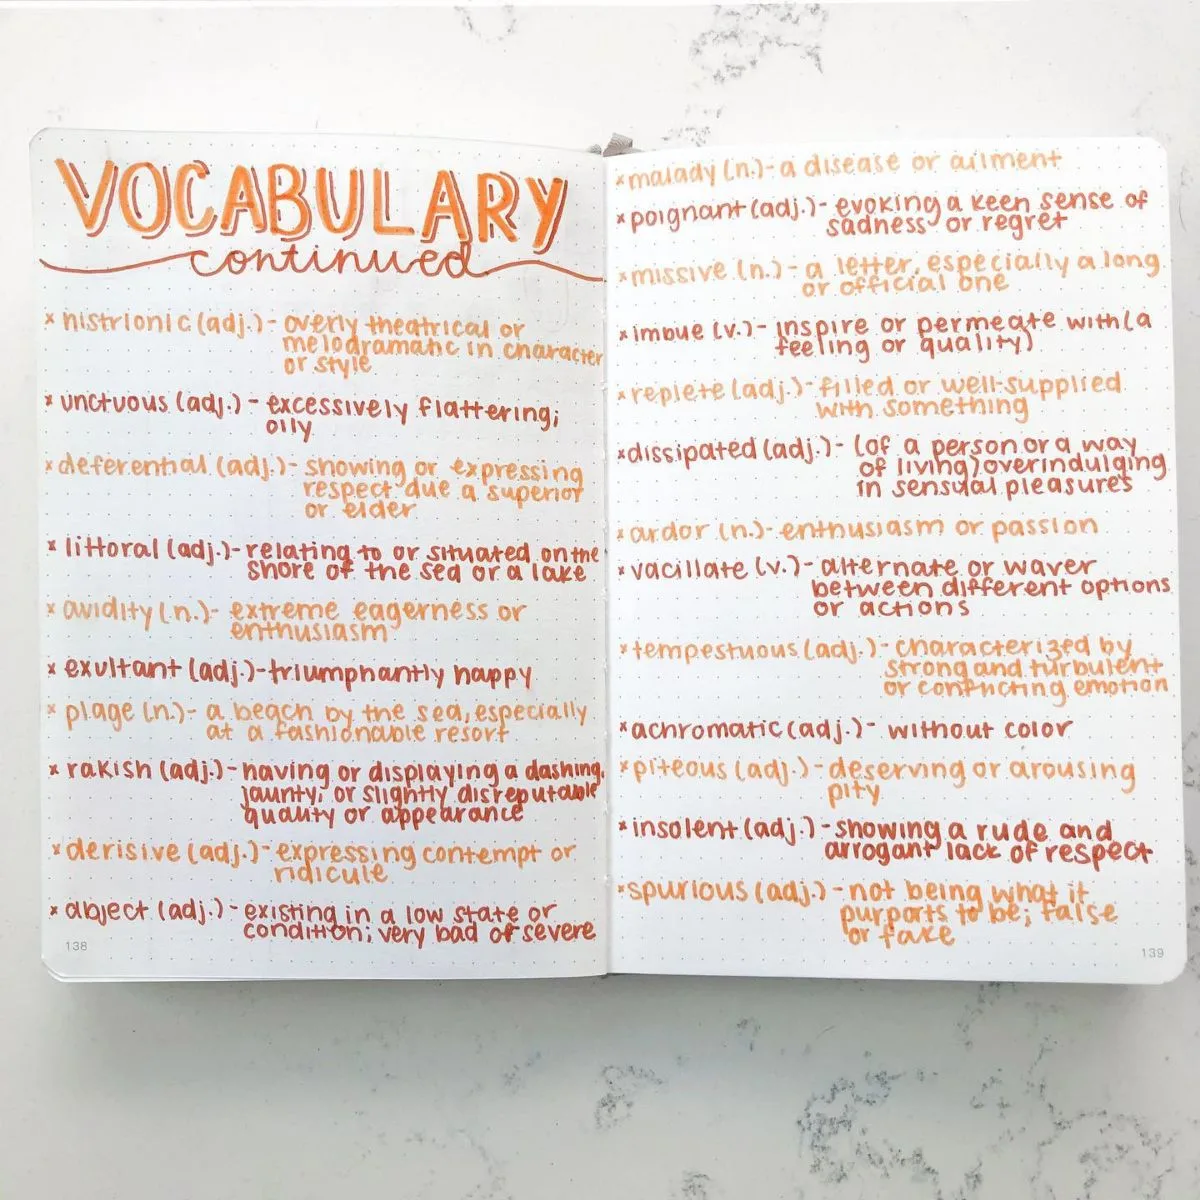 VOCABULARY
continued
× histrionic (adj.)- overly theatrical or
melodramatic in character
or style
× unctuous (adj.) - excessively flattering;
oily
× deferential (adj.)- showing or expressing
respect due a superior
or elder
× littoral (adj.)- relating to or situated on the
shore of the sea or a lake
× avidity (n.)- extreme eagerness or
enthusiasm
× exultant (adj.)-triumphantly happy
× plage (n.)- a beach by the sea, especially
at a fashionable resort
× rakish (adj.)- having or displaying a dashing,
jaunty, or slightly disreputable
quality or appearance
× derisive (adj.)- expressing contempt or
ridicule
× abject (adj.)- existing in a low state or
condition; very bad or severe
138
× malady (n.)- a disease or ailment
× poignant (adj.)- evoking a keen sense of
sadness or regret
× missive (n.)- a letter, especially a long
or official one
× imbue (v.)- inspire or permeate with (a
feeling or quality)
× replete (adj.)- filled or well-supplied
with something
× dissipated (adj.)- (of a person or a way
of living) overindulging
in sensual pleasures
× ardor (n.)- enthusiasm or passion
× vacillate (v.)- alternate or waver
between different options
or actions
× tempestuous (adj.)- characterized by
strong and turbulent
or conflicting emotion
× achromatic (adj.)- without color
× piteous (adj.)- deserving or arousing
pity
× insolent (adj.)- showing a rude and
arrogant lack of respect
× spurious (adj.)- not being what it
purports to be; false
or fake
139